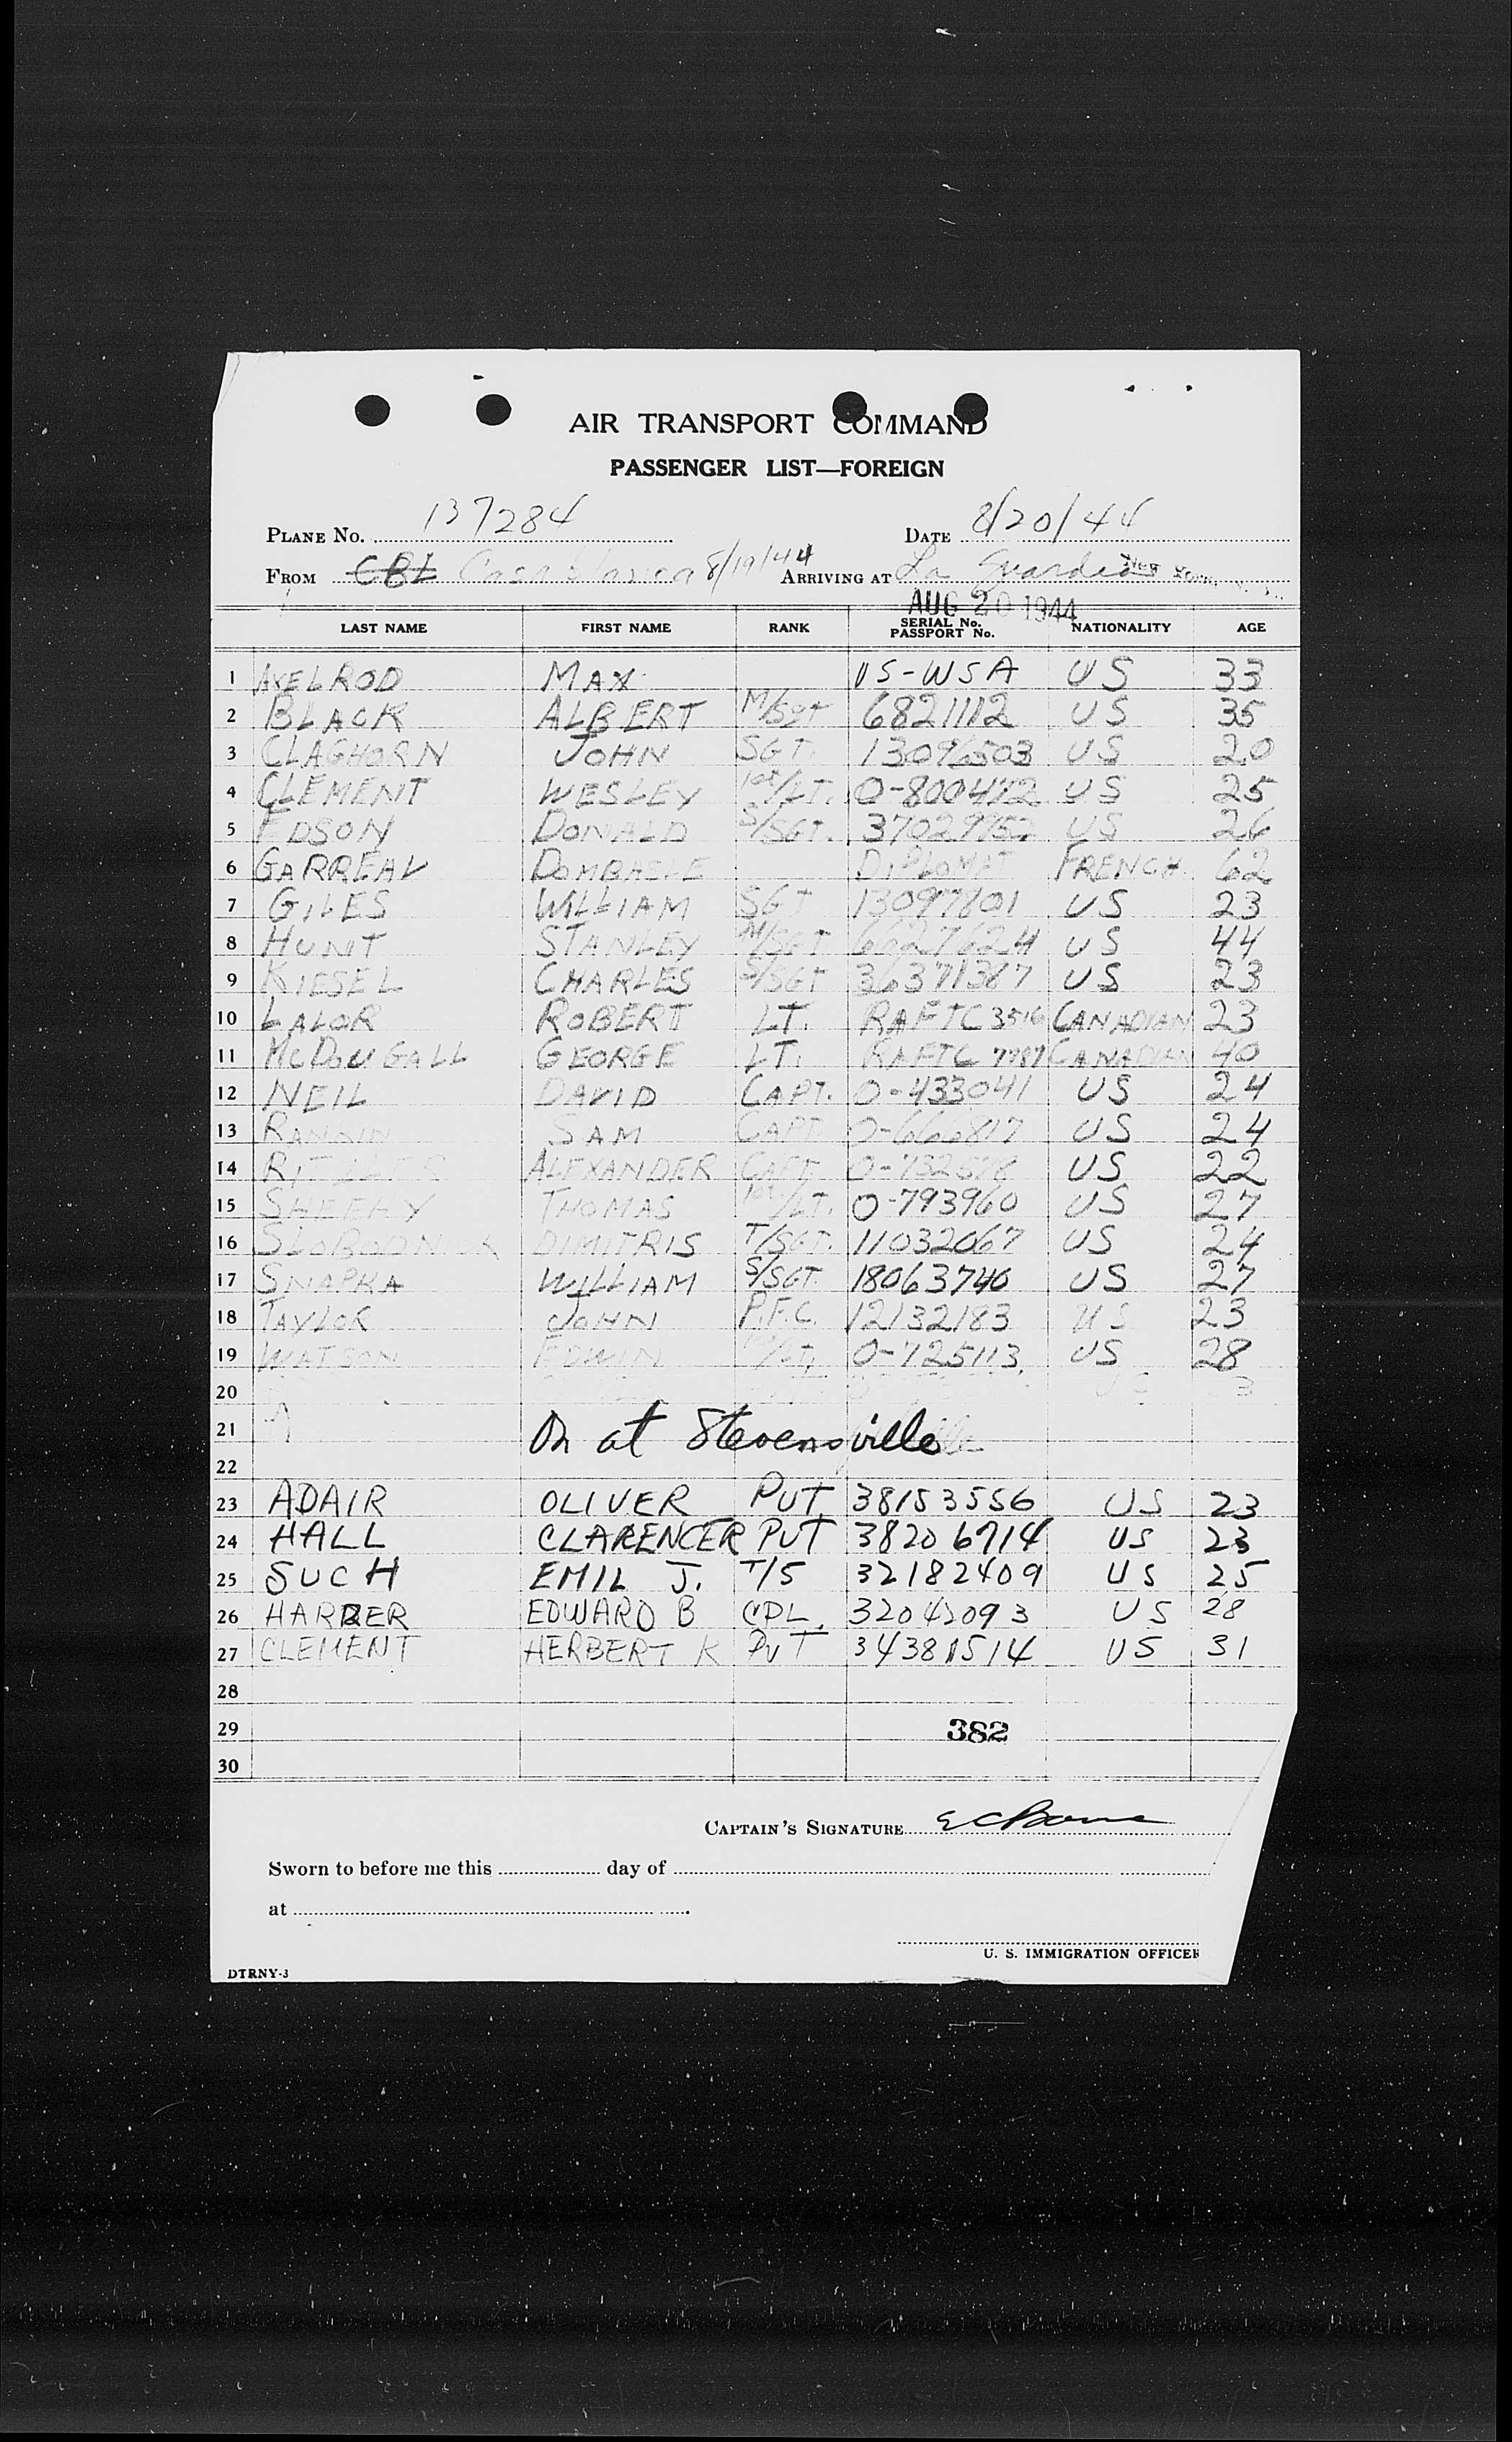 AIR TRANSPORT COMMAND
PASSENGER LIST—FOREIGN
PLANE No. 137284 DATE 8/20/44
FROM CBL Casablanca 8/19/44 ARRIVING AT La Guardia New York
AUG 20 1944
LAST NAME FIRST NAME RANK SERIAL No. PASSPORT No. NATIONALITY AGE
1 AXELROD MAX US-WSA US 33
2 BLACK ALBERT M/SGT 6821112 US 35
3 CLAGHORN JOHN SGT. 13096503 US 20
4 CLEMENT WESLEY 1st/LT. O-800472 US 25
5 EDSON DONALD S/SGT. 37029752 US 26
6 GARREAU DOMBASLE DIPLOMAT FRENCH 62
7 GILES WILLIAM SGT 13097801 US 23
8 HUNT STANLEY M/SGT. 6627624 US 44
9 KIESEL CHARLES S/SGT 36371387 US 23
10 LALOR ROBERT LT. RAFTC 3516 CANADIAN 23
11 McDOUGALL GEORGE LT. RAFTC 7787 CANADIAN 40
12 NEIL DAVID CAPT. O-433041 US 24
13 RANKIN SAM CAPT O-666817 US 24
14 ALEXANDER CAPT. US 22
15 SHEEHY THOMAS 1st/LT. O-793960 US 27
16 DIMITRIS T/SGT. 11032067 US 24
17 SNAPKA WILLIAM S/SGT. 18063746 US 27
18 TAYLOR JOHN P.F.C. 12132183 US 23
19 WATSON EDWIN O-725113 US 28
20
21 On at Stevensville
22
23 ADAIR OLIVER PVT 38153556 US 23
24 HALL CLARENCE R PVT 38206714 US 23
25 SUCH EMIL J. T/5 32182409 US 25
26 HARDER EDWARD B CPL. 32042093 US 28
27 CLEMENT HERBERT K PVT 34381514 US 31
28
29 382
30
CAPTAIN'S SIGNATURE
Sworn to before me this day of
at
U. S. IMMIGRATION OFFICER
DTRNY-3